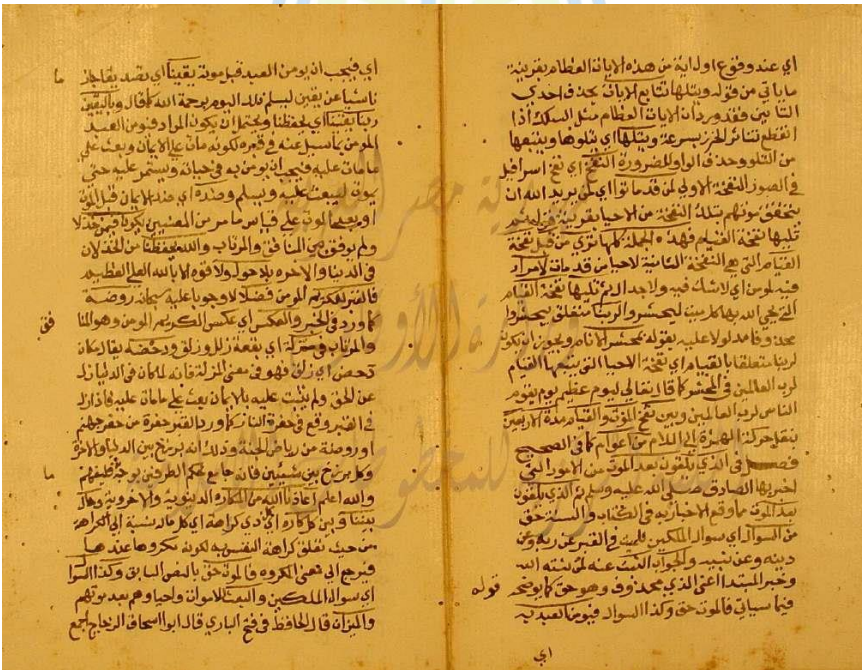 اي عند وقوع اول اية من هذه الايات العظام بقرينة
ما ياتي من قوله ويتلها تتابع الايات بحذف احدى
التايين فقد ورد ان الايات العظام مثل السلك اذا
انقطع تناثر الخرز بسرعة ويتلها اي يتلوها ويتبعها
من التلو وحذف الواو للضرورة النفخ اي نفخ اسرافيل
في الصور النفخة الاولى لمن قد ماتوا اي لمن يريد الله ان
يتحقق موتهم بتلك النفخة من الاحيا بقرينة قوله
تليها نفخة القيام فهذه الجملة كلها ترى من قبل نفخة
القيام التي هي النفخة الثانية لاحيا من قد مات لامراد
فيه لمومن اي لاشك فيه ولاجدال ثم تليها نفخة القيام
التي يحي الله بها كل ميت ليحشروا لربنا متعلق بيحشروا
محذوفا مدلولا عليه بقوله بمحشر الانام ويجوز ان يكون
لربنا متعلقا بالقيام اي نفخة الاحيا التي يتبعها القيام
لرب العالمين في المحشر كما قال تعالى ليوم عظيم يوم يقوم
الناس لرب العالمين وبين نفخ الموت والقيام مدة الاربعين
بنقل حركة الهمزة الى اللام من اعوام كما في الصحيح
فصل في الذي يلقون بعد الموت من الامور التي
اخبر بها الصادق صلى الله عليه وسلم ثم الذي يلقون
بعد الموت مما وقع الاخبار به في الكتاب والسنة حق
من السوال اي سوال الملكين للميت في القبر عن ربه وعن
دينه وعن نبيه والجواب الثبت عنه لمن ثبته الله
وخبر المبتدا اعني الذي محذوف وهو حق كما يوضحه قوله
فيما سياتي فالموت حق وكذا السوال فيومن العبد به
اي
اي فيجب ان يومن العبد قبل موته يقينا اي تصديقا جاز ما
ناشيا عن يقين ليسلم ذلك اليوم برحمة الله كما قال وباليقين
ربنا يقينا اي يحفظنا ويحتمل ان يكون المراد فيومن العبد
المومن بما سيل عنه في قبره لكونه مات على الايمان وبعث على
ما مات عليه فيجب ان يومن به في حياته ويستمر عليه حتى
يموت ليبعث عليه ويسلم وضده اي ضد الايمان قبل الموت
او بعد الموت على قياس ما مر من المعنيين يكون فيمن خذلا
ولم يوفق من المنافق والمرتاب والله يحفظنا من الخذلان
في الدنيا والاخرة بلا حول ولا قوة الا بالله العلي العظيم
فالقبر لمكرم المومن فضلا لا وجوبا عليه سبحانه روضه
كما ورد في الخبر والعكس اي عكس المكرم المومن وهو المنافق
والمرتاب في مزلة اي بقعة زلل وزلق ودحضه يقال مكان
دحض اي زلق فهو في معنى المزلة فانه لما كان في الدنيا زل
عن الحق ولم يثبت عليه بالايمان بعث على ما مات عليه فاذا زل
في القبر وقع في حفرة النار كما ورد القبر حفرة من حفر جهنم
او روضة من رياض الجنة وذلك انه برزخ بين الدنيا والاخرة
وكل برزخ بين شيئين فانه جامع لحكم الطرفين بوجه فليفهم
والله اعلم اعاذنا الله من المكاره الدنيوية والاخروية وحال
بيننا وبين كل كاره اي ذي كراهة اي كل ما له نسبة الى الكراهة
من حيث تعلق كراهة النفس به لكونه مكروها عندها
فيرجع الى معنى المكروه فالموت حق بالنص السابق وكذا السوال
اي سوال الملكين والبعث للاموات واحياوهم بعد موتهم
والميزان قال الحافظ في فتح الباري قال ابو اسحاق الزجاج اجمع